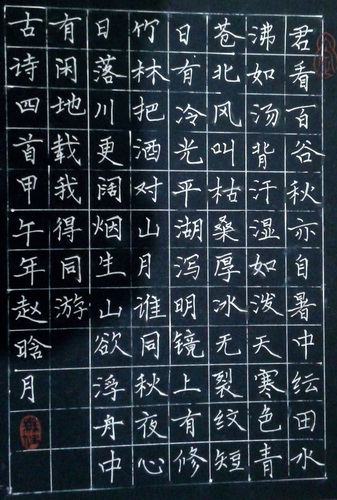 君看百谷秋亦自暑中纭田水
沸如汤背汗湿如泼天寒色青
苍北风叫枯桑厚冰无裂纹短
日有冷光平湖泻明镜上有修
竹林把酒对山月谁同秋夜心
日落川更阔烟生山欲浮舟中
有闲地载我得同游
古诗四首甲午年赵晗月